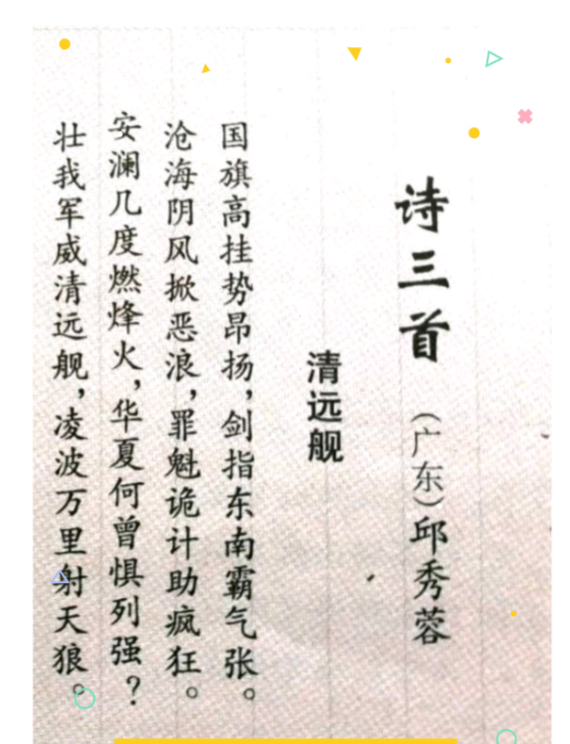 诗三首 （广东）邱秀蓉
清远舰
国旗高挂势昂扬，剑指东南霸气张。
沧海阴风掀恶浪，罪魁诡计助疯狂。
安澜几度燃烽火，华夏何曾惧列强？
壮我军威清远舰，凌波万里射天狼。